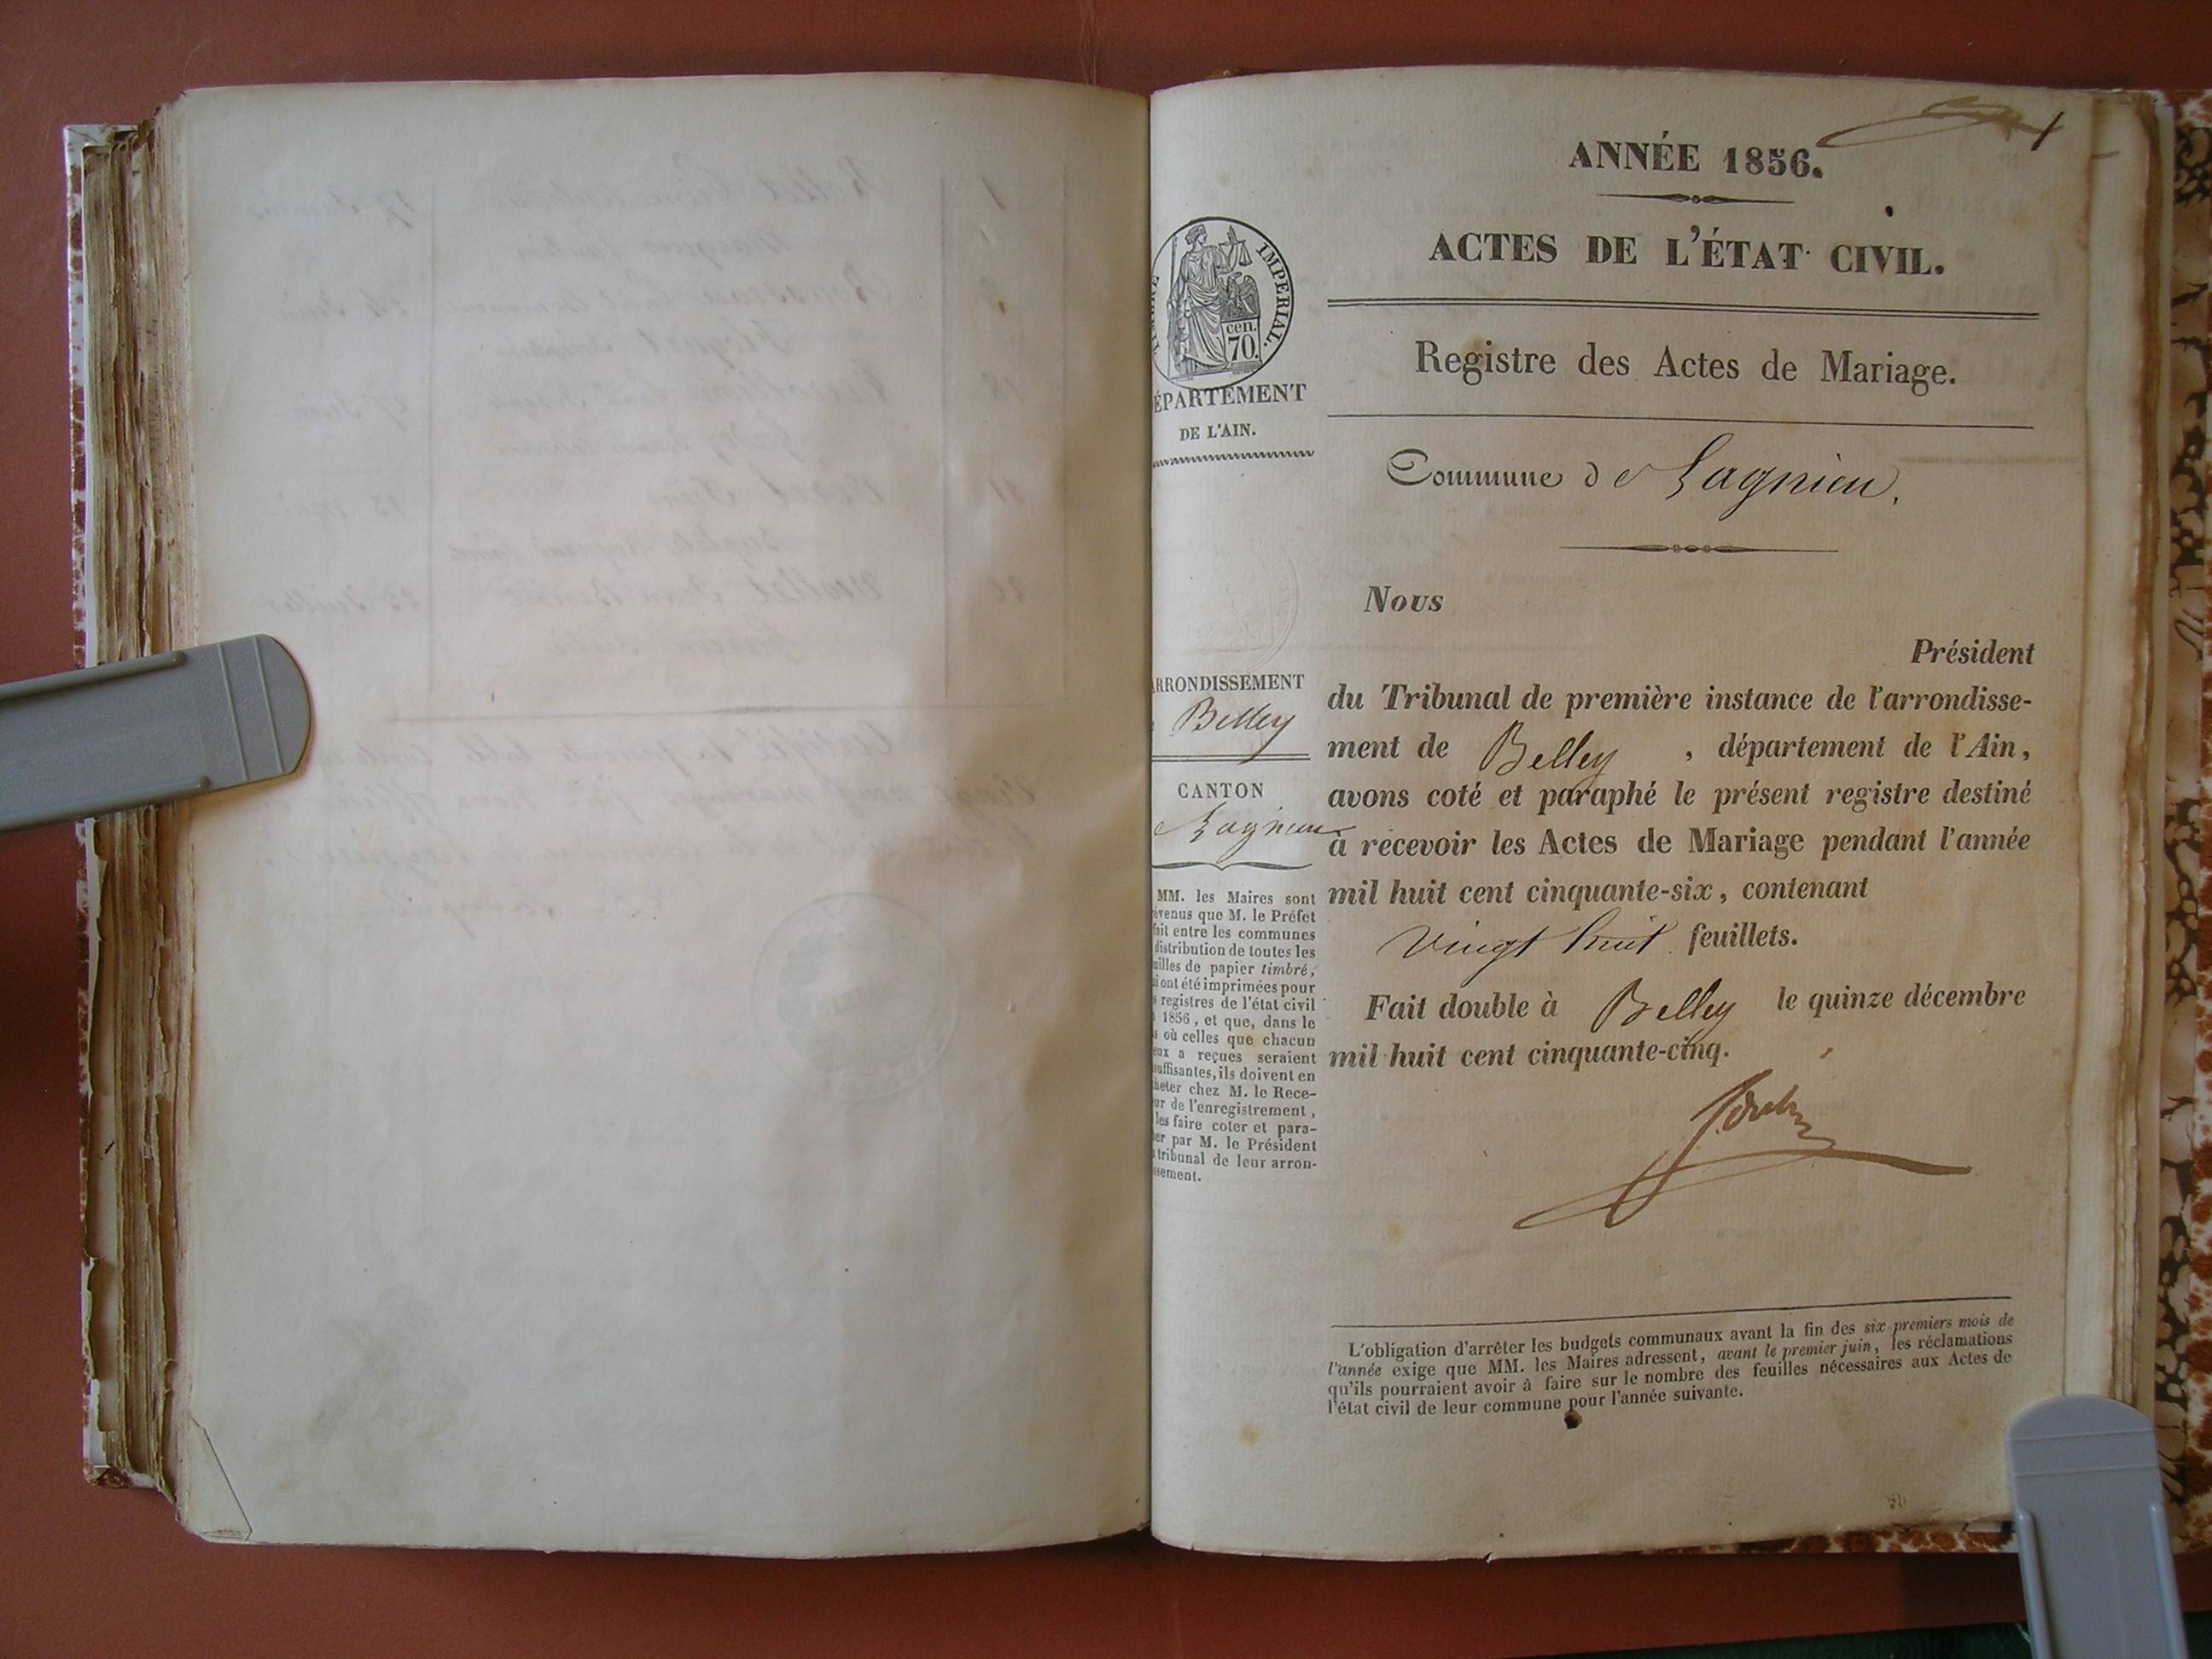 1
ANNÉE 1856.
ACTES DE L'ÉTAT CIVIL.
Registre des Actes de Mariage.
Commune de Lagnieu.
IMPÉRIAL.
cen.
70.
ÉPARTEMENT
DE L'AIN.
RRONDISSEMENT
Belley
CANTON
e Lagnieu
MM. les Maires sont
évenus que M. le Préfet
fait entre les communes
distribution de toutes les
uilles de papier timbré,
i ont été imprimées pour
s registres de l'état civil
1856, et que, dans le
s où celles que chacun
eux a reçues seraient
suffisantes, ils doivent en
heter chez M. le Rece-
ur de l'enregistrement,
les faire coter et para-
er par M. le Président
tribunal de leur arron-
ssement.
Nous
Président
du Tribunal de première instance de l'arrondisse-
ment de Belley , département de l'Ain,
avons coté et paraphé le présent registre destiné
à recevoir les Actes de Mariage pendant l'année
mil huit cent cinquante-six, contenant
vingt huit feuillets.
Fait double à Belley le quinze décembre
mil huit cent cinquante-cinq.
L'obligation d'arrêter les budgets communaux avant la fin des six premiers mois de
l'année exige que MM. les Maires adressent, avant le premier juin, les réclamations
qu'ils pourraient avoir à faire sur le nombre des feuilles nécessaires aux Actes de
l'état civil de leur commune pour l'année suivante.